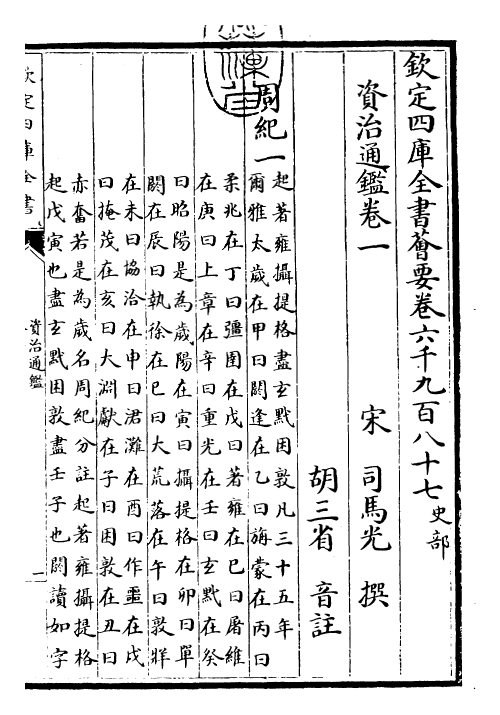 欽定四庫全書薈要卷六千九百八十七史部
資治通鑑卷一
宋 司馬光 撰
胡三省 音註
周紀一
起著雍攝提格盡玄黓困敦凡三十五年
爾雅太歲在甲曰閼逢在乙曰旃蒙在丙曰
柔兆在丁曰彊圉在戊曰著雍在巳曰屠維
在庚曰上章在辛曰重光在壬曰玄黓在癸
曰昭陽是為歲陽在寅曰攝提格在卯曰單
閼在辰曰執徐在巳曰大荒落在午曰敦牂
在未曰協洽在申曰君灘在酉曰作噩在戌
曰掩茂在亥曰大淵獻在子曰困敦在丑曰
赤奮若是為歲名周紀分註起著雍攝提格
起戊寅也盡玄黓困敦盡壬子也閼讀如字
欽定四庫全書
資治通鑑
一